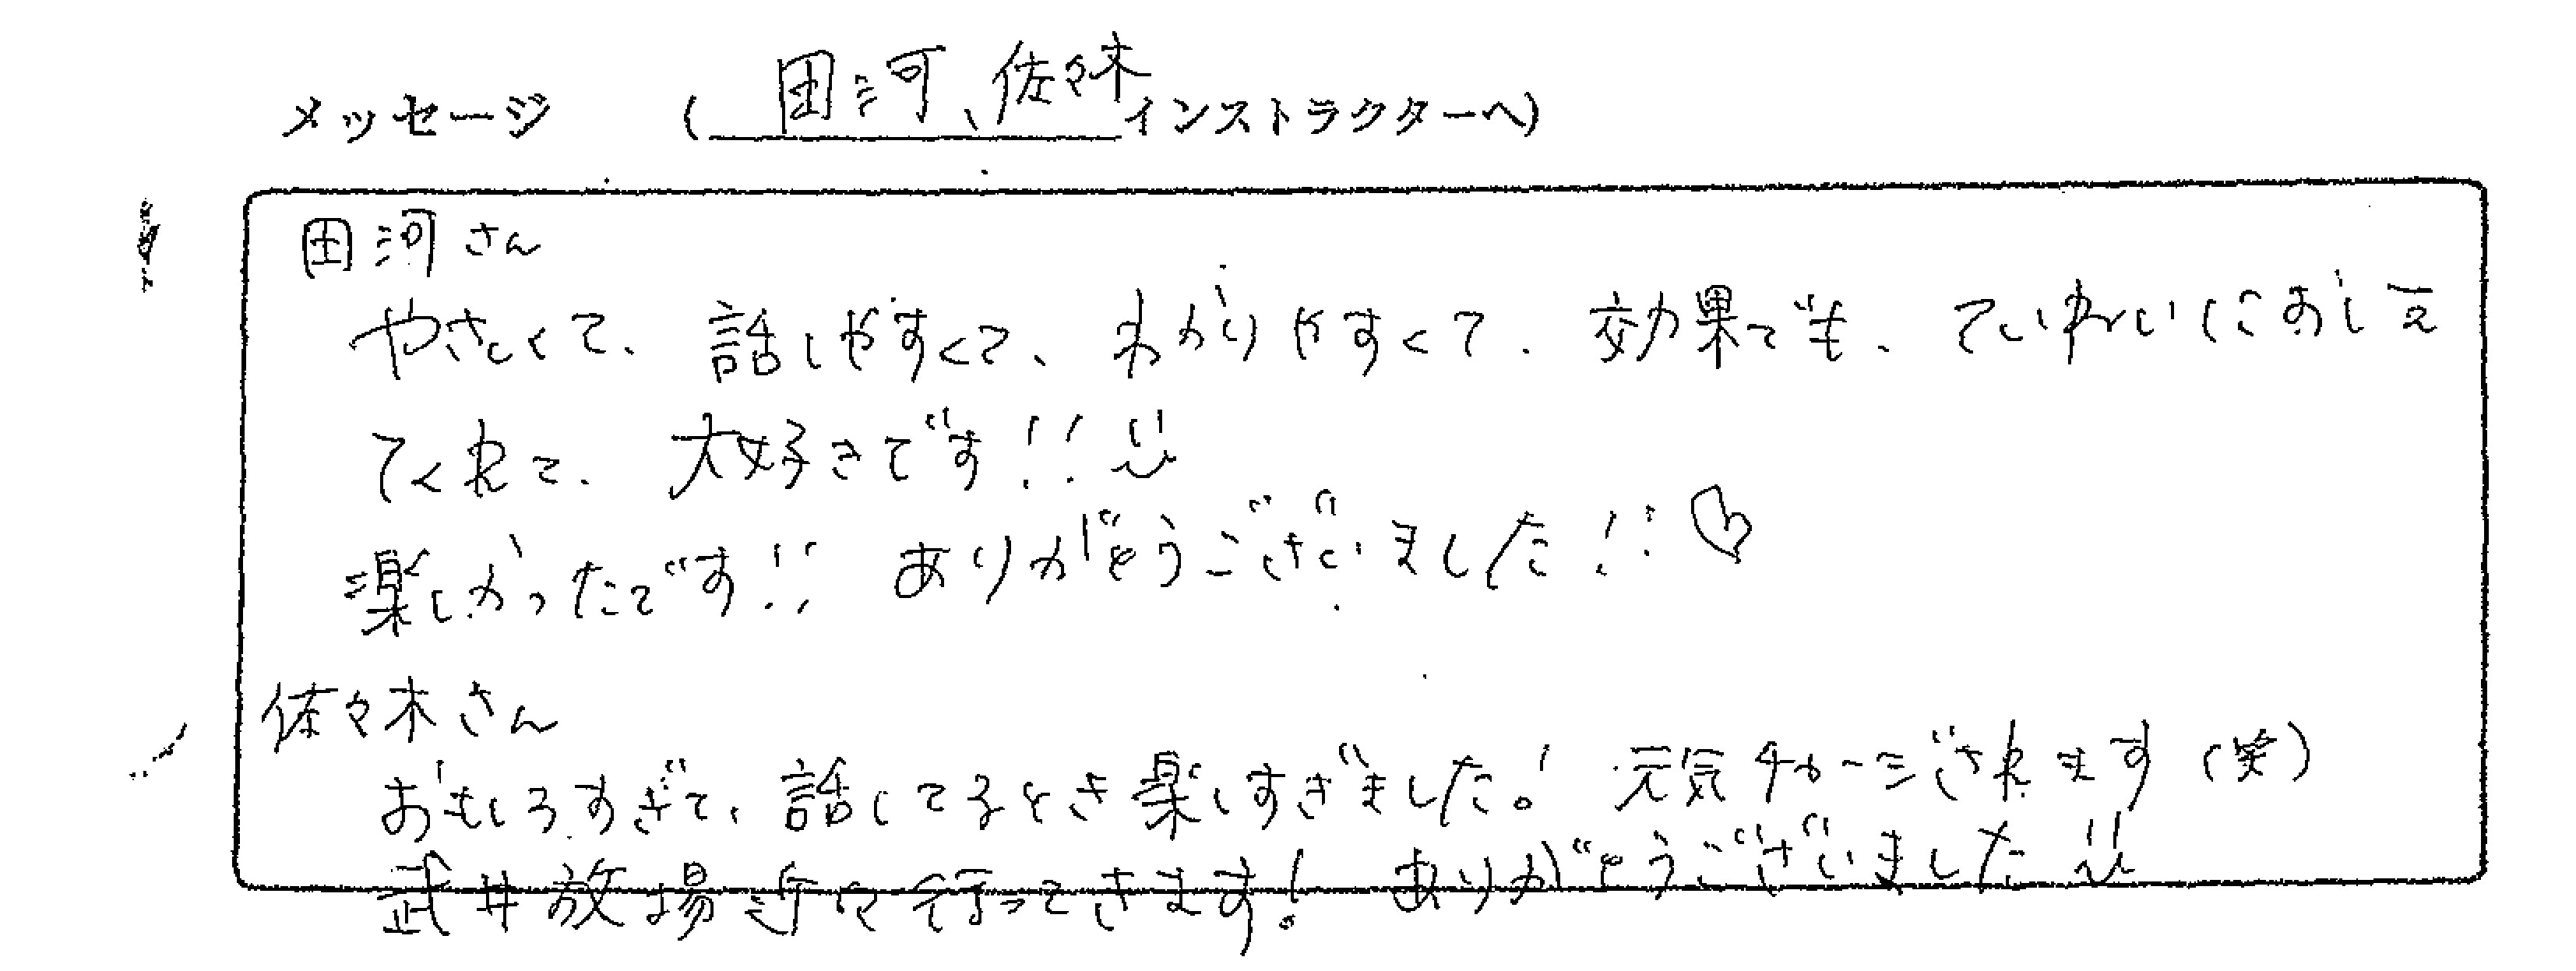 メッセージ (田河、佐々木インストラクターへ)
田河さん
やさしくて、話しやすくて、わかりやすくて、効果でも、ていねいにおしえ
てくれて、大好きです!!
楽しかったです!! ありがとうございました!!♡
佐々木さん
おもしろすぎて、話してるとき楽しすぎました! 元気チャージされます(笑)
武井放場近々行ってきます! ありがとうございました